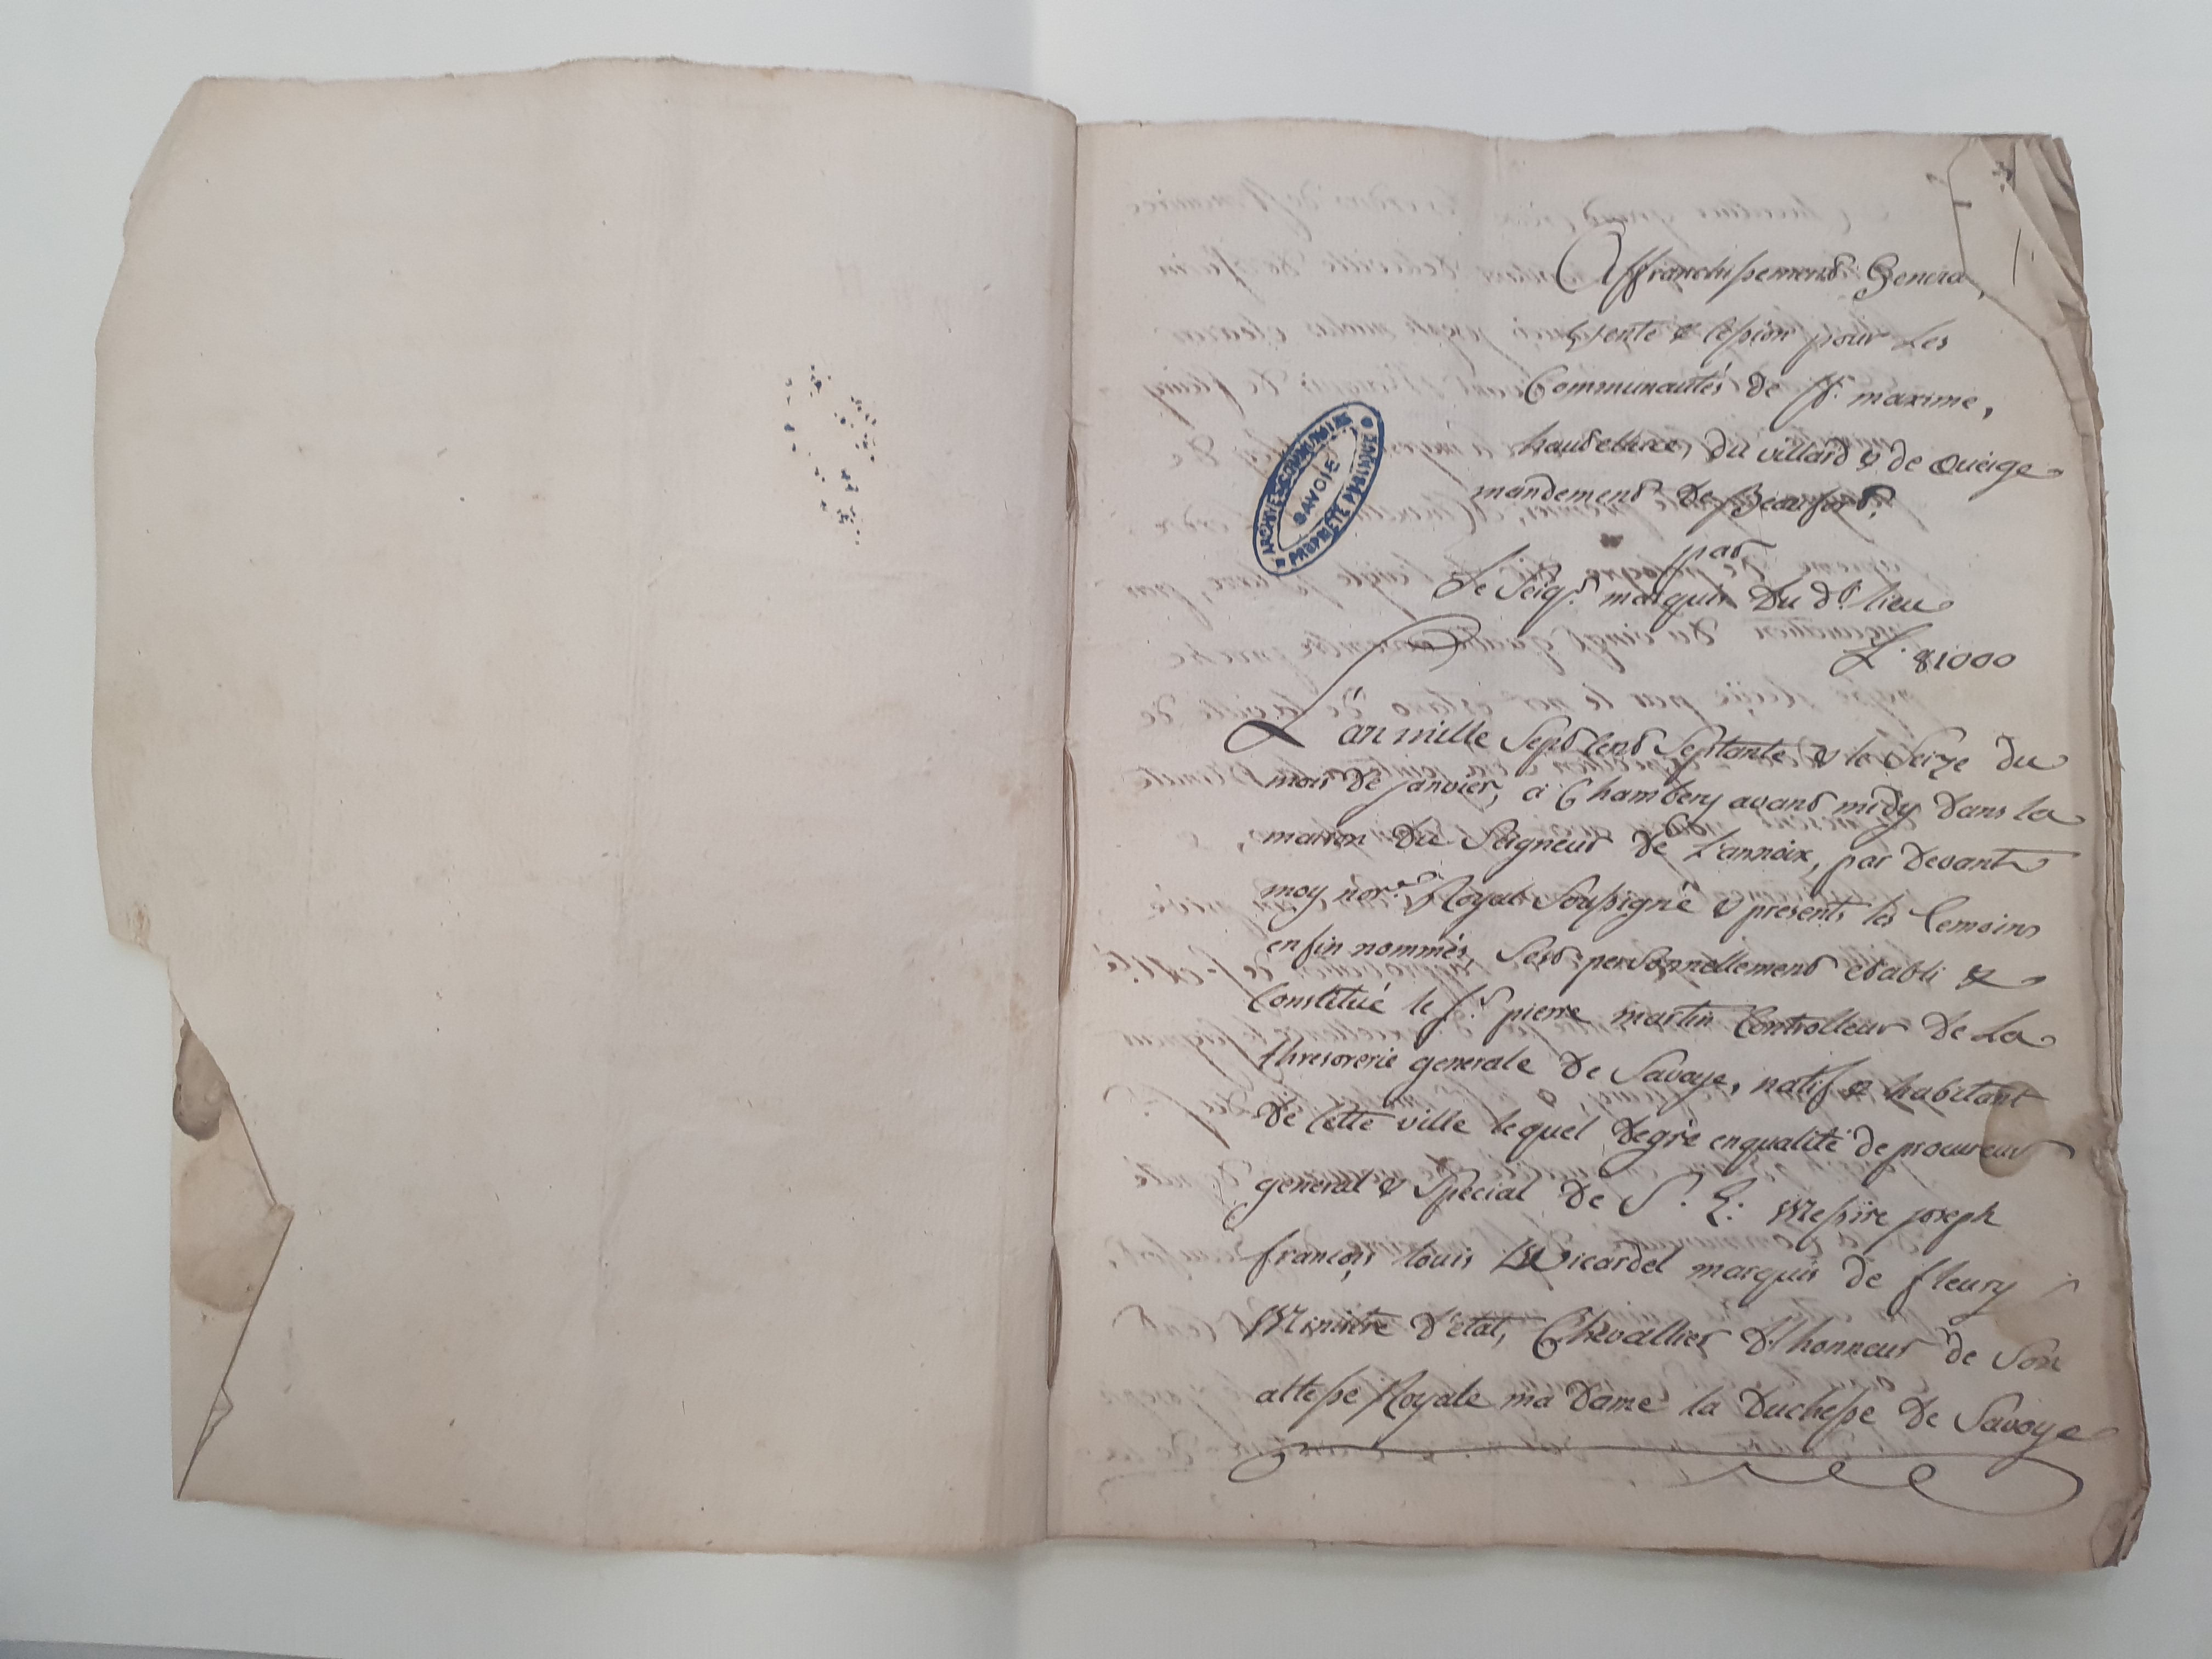 Affranchissement Genera
vente & cession pour Les
Communautés de St. maxime,
hauteluce, du villard & de Queige
mandement de Beaufort,
par
Le Seigr. marquis Du dt. lieu
L. 81000
ARCHIVES COMMUNALES
SAVOIE
PROPRIÉTÉ PUBLIQUE
L'an mille Sept Cent Septante & le Seize du
mois de Janvier, à Chambery avant midy dans la
maison du Seigneur de Lannoix, par devant
moy nore. Royal Soussigné & presents les temoins
enfin nommés, Sest personnellement etabli &
Constitué le Sr. pierre martin Controlleur de La
thresorerie generale de Savoye, natif & habitant
de Cette ville lequel degré enqualité de procureur
general & Special de S. E. Messire joseph
françois louis Wicardel marquis de fleury
Ministre d'état, Chevallier d'honneur de Son
altesse Royale ma Dame la Duchesse de Savoye